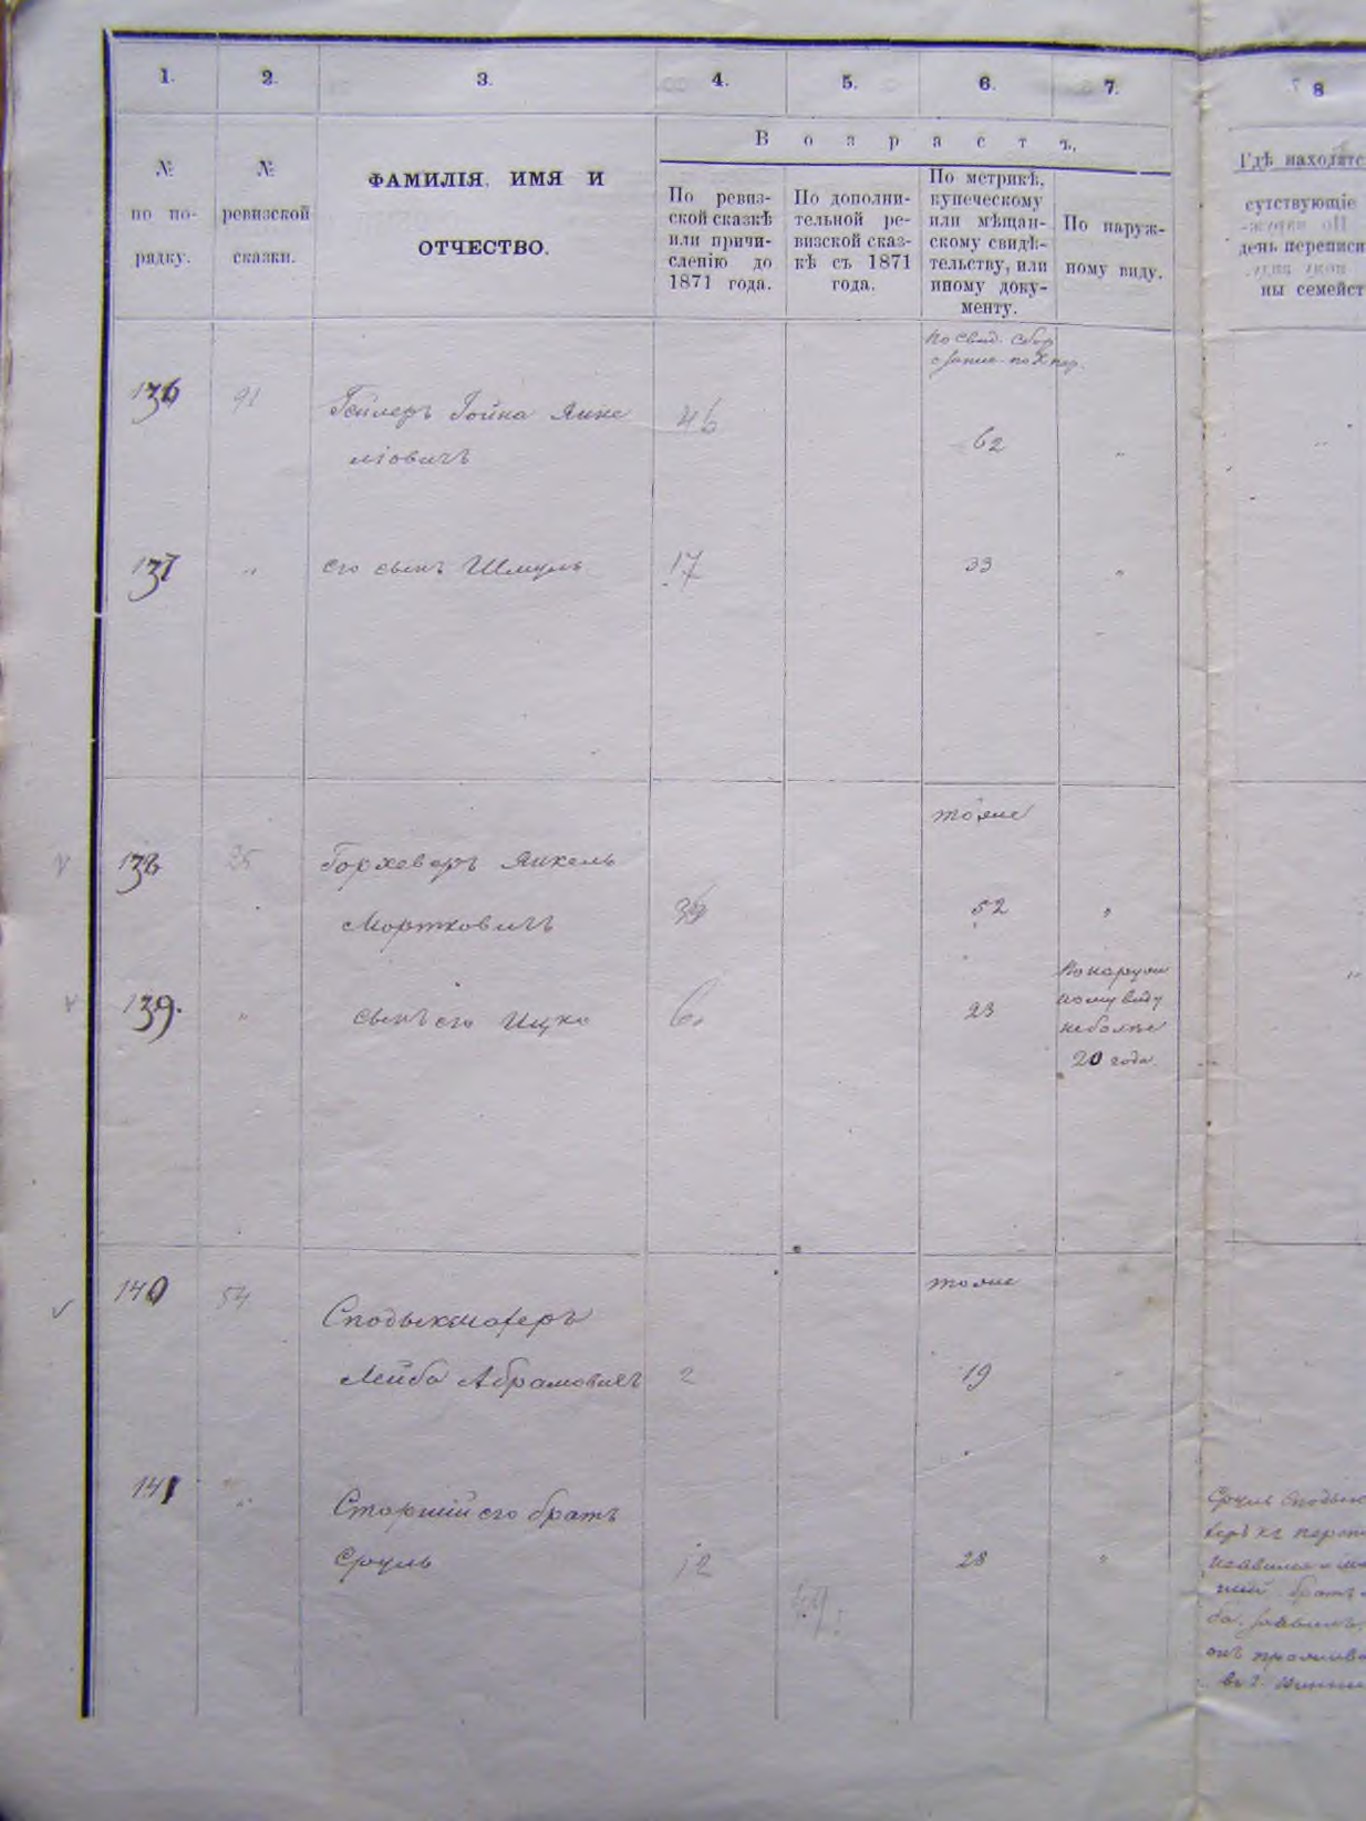 1. 2. 3. 4. 5. 6. 7. 8
№ по по- рядку.
№ ревизской сказки.
ФАМИЛІЯ, ИМЯ И
ОТЧЕСТВО.
Возрастъ.
По ревиз-
ской сказкѣ
или причи-
сленію до
1871 года.
По дополни-
тельной ре-
визской сказ-
кѣ съ 1871
года.
По метрикѣ,
купеческому
или мѣщан-
скому свидѣ-
тельству, или
иному доку-
менту.
По наруж-
ному виду.
Гдѣ находятс
сутствующіе
день переписи
ны семейст
по свид.
136 91 Гейлеръ Іойна Янке 46
ліовичъ 62 „
137 „ его сынъ Шмуль 17 33 „
тоже
138 25 Горховеръ Янкель
Мортковичъ 36 52 „
139. „ сынъ его Ицко 6. 23
По наруж
ному виду
не болѣе
20 года
140 54 тоже
Лейба Абрамовичъ 2 19 „
141 „ Старшій его братъ
Сруль 12 28 „
44.
Сруль
братъ
онъ